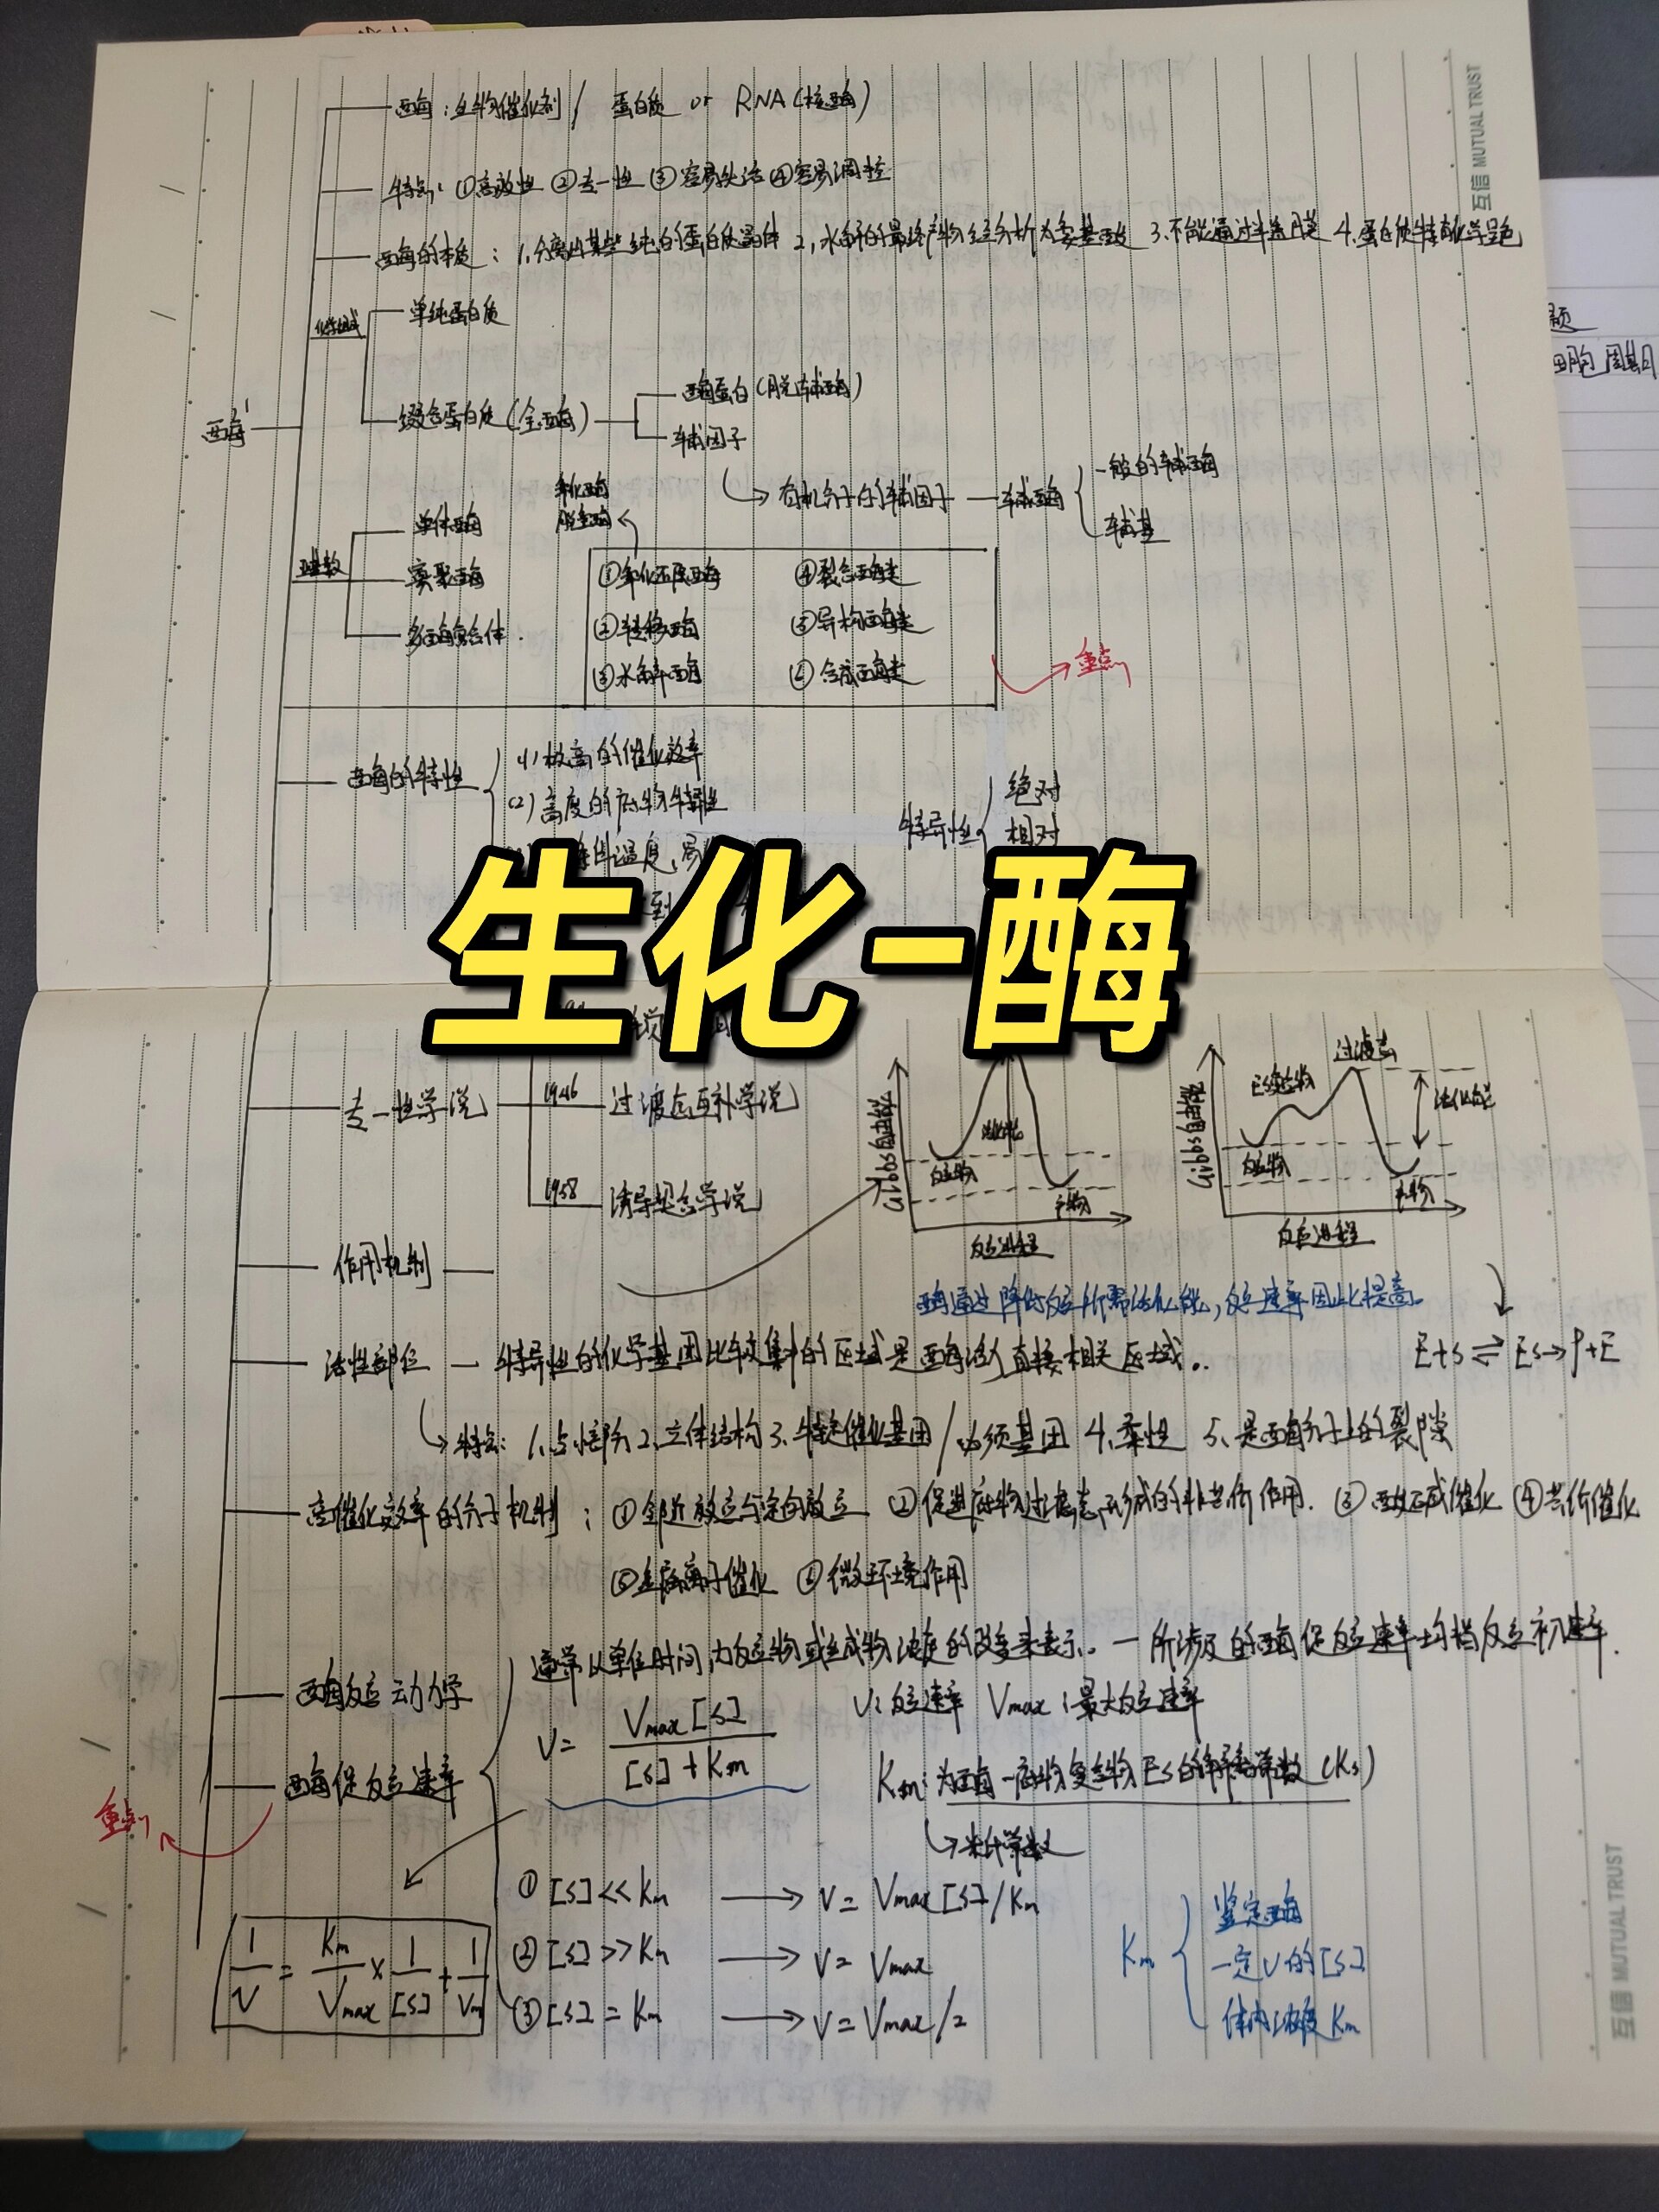 酶：生物催化剂 / 蛋白质 or RNA（核酶）
特点：①高效性 ②专一性 ③容易失活 ④容易调控
酶的本质：1.分离出某些纯的蛋白质晶体 2.水解的最终产物经分析为氨基酸 3.不能通过半透膜 4.蛋白质特有化学呈色
酶
化学组成
单纯蛋白质
缀合蛋白质（全酶）
酶蛋白（脱辅酶）
辅因子
有机分子的辅因子 — 辅酶
一般的辅酶
辅基
亚基数
单体酶
寡聚酶
多酶复合体
氧化酶
脱氢酶
①氧化还原酶 ④裂合酶类
②转移酶 ⑤异构酶类
③水解酶 ⑥合成酶类
重点
酶的特性
(1)极高的催化效率
(2)高度的底物特异性
温度，易
到
特异性
绝对
相对
生化-酶
专一性学说
1946 过渡态互补学说
1958 诱导契合学说
Gibbs自由能
活化能
反应物
产物
反应进程
Gibbs自由能
ES复合物
过渡态
活化能
反应物
产物
反应进程
作用机制
酶通过降低反应所需活化能，反应速率因此提高。
E+S⇌ES→P+E
活性部位 — 特异性的化学基团比较集中的区域是酶活力直接相关区域。
特点：1.占小部分 2.立体结构 3.特定催化基团/必须基团 4.柔性 5.是酶分子上的裂隙
高催化效率的分子机制：①邻近效应与定向效应 ②促进底物过渡态形成的非共价作用. ③酸碱催化 ④共价催化
⑤金属离子催化 ⑥微环境作用
酶反应动力学
酶促反应速率
重点
通常以单位时间内反应物或生成物浓度的改变来表示。— 所涉及的酶促反应速率均指反应初速率.
V = Vmax[S] / [S]+Km
V：反应速率 Vmax：最大反应速率
Km：为酶—底物复合物ES的解离常数（Ks）
米氏常数
1/V = Km/Vmax × 1/[S] + 1/Vm
①[S]<<Km → V = Vmax[S]/Km
②[S]>>Km → V = Vmax
③[S] = Km → V = Vmax/2
Km
鉴定酶
一定V的[S]
体内浓度Km
互信 MUTUAL TRUST
互信 MUTUAL TRUST
题
细胞周期